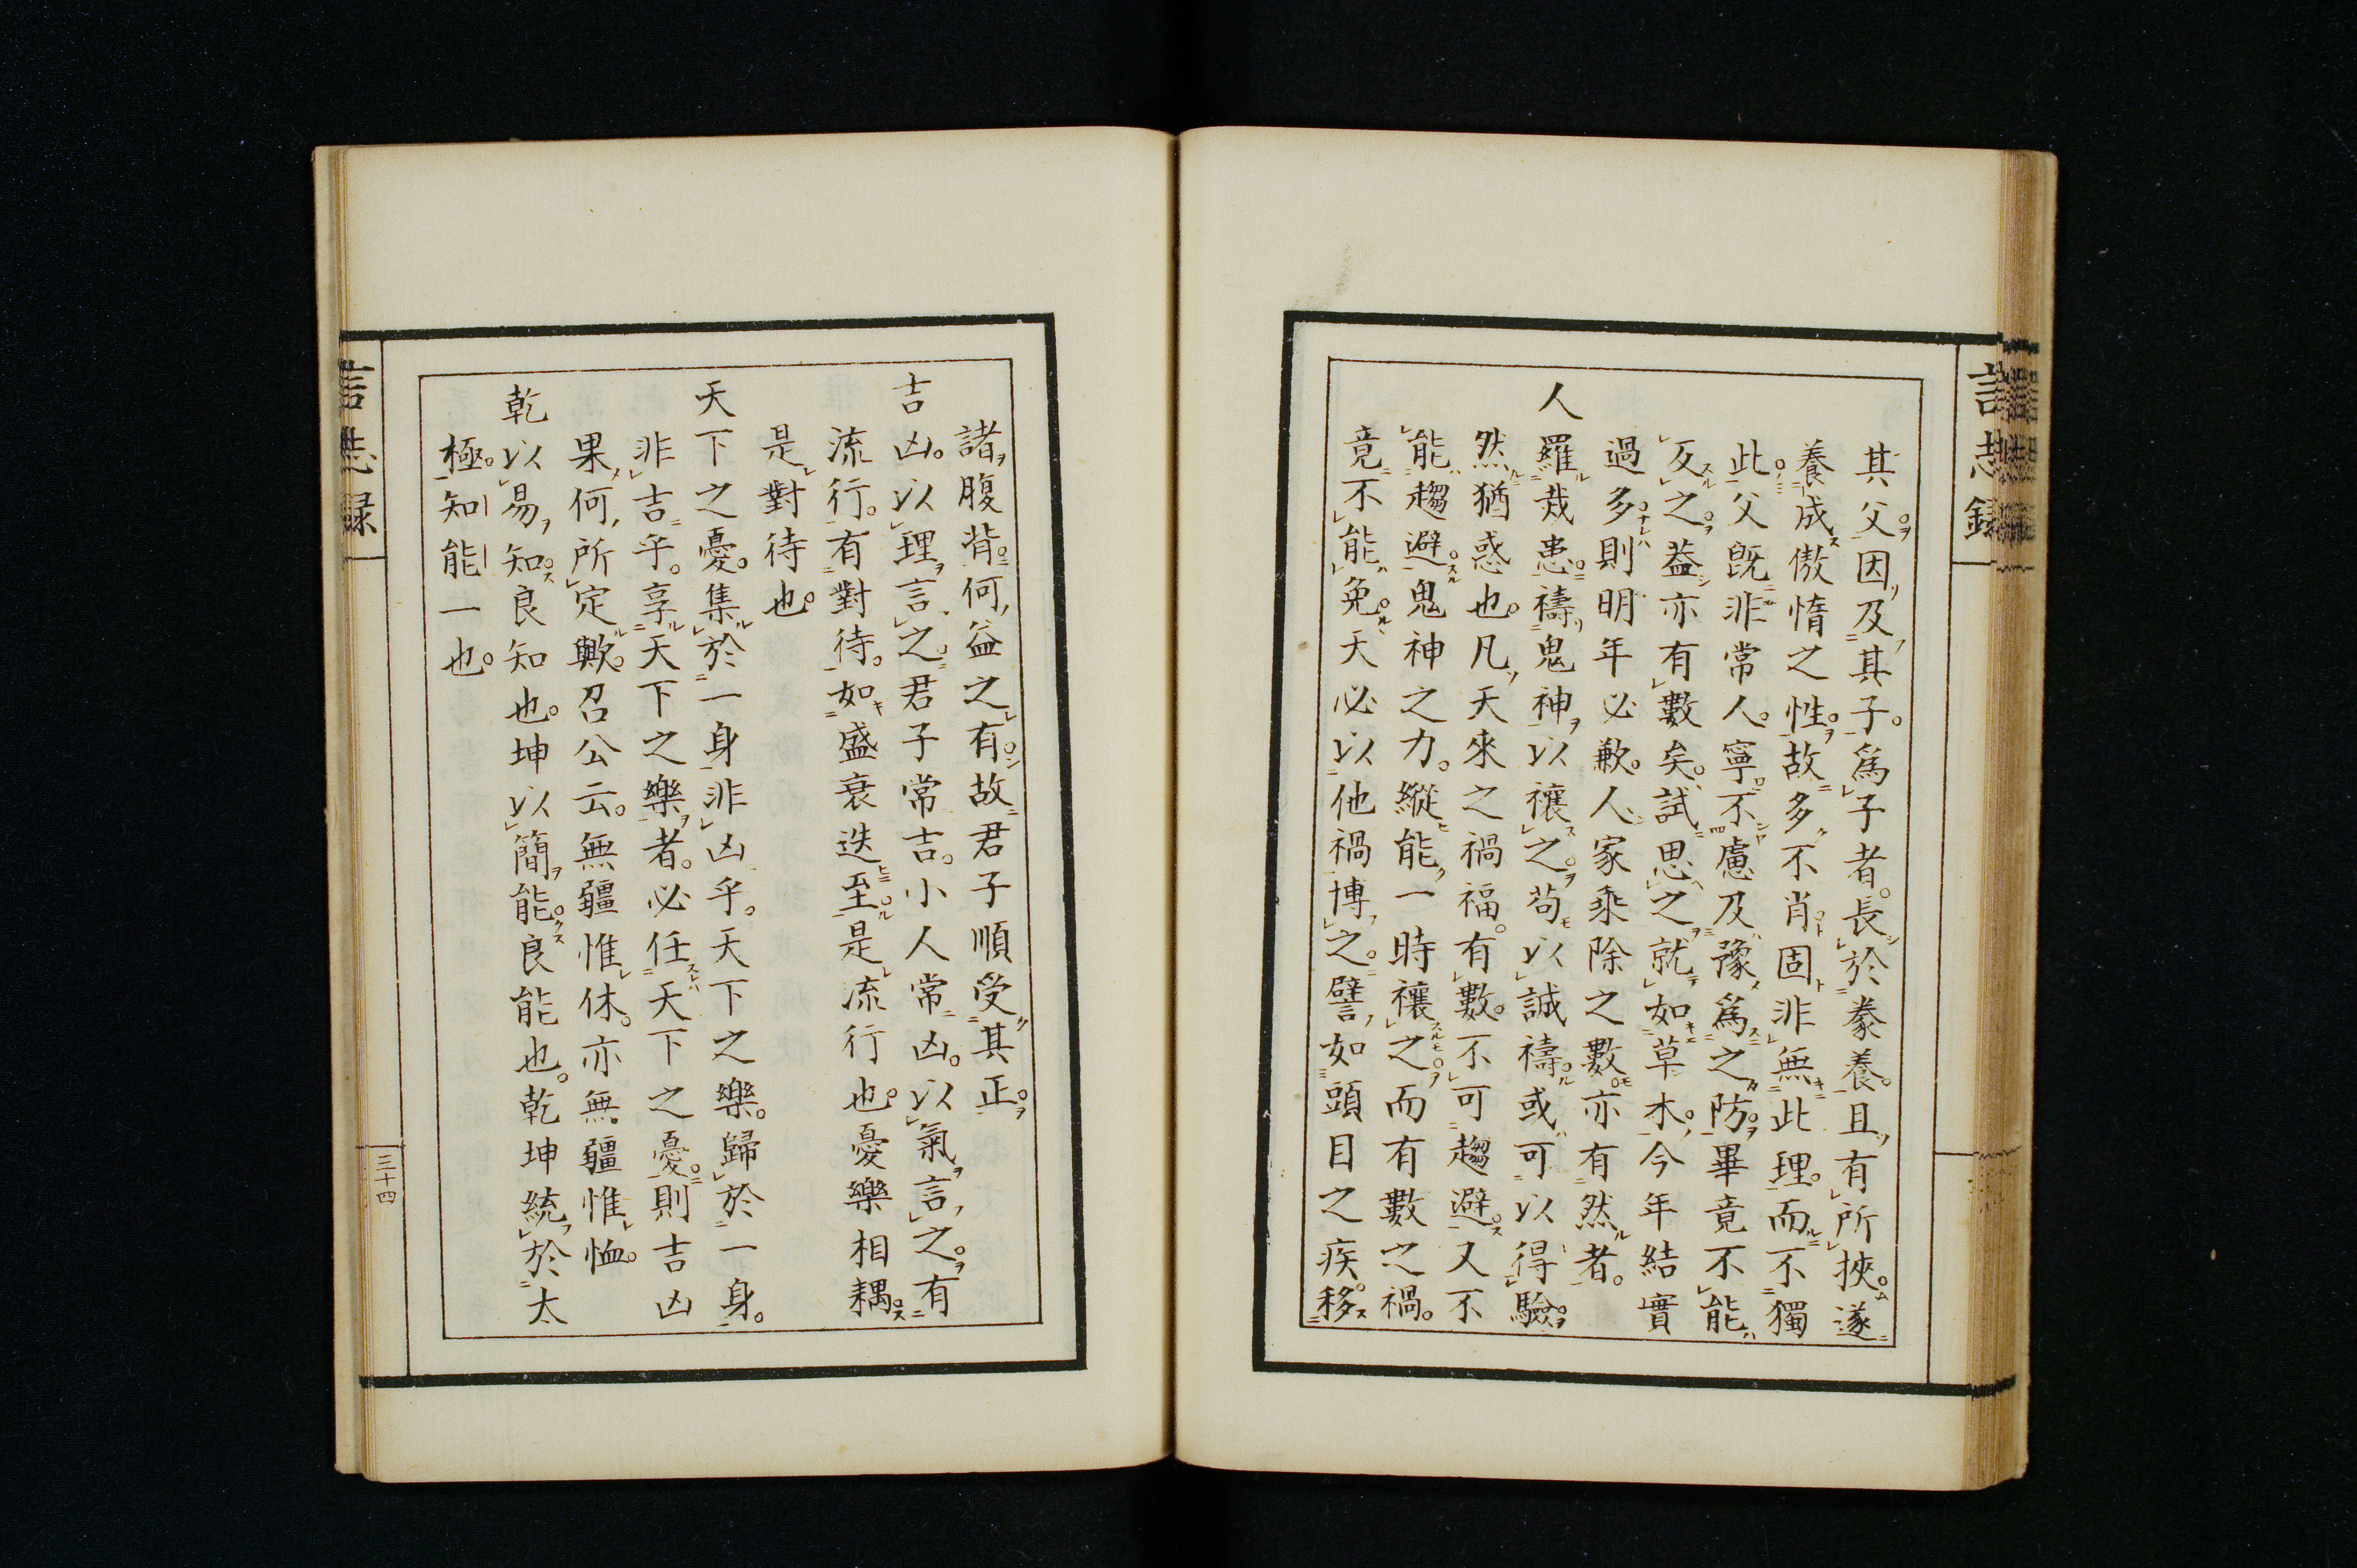 言志錄
其父因及其子爲子者長於豢養且有所挾遂
養成傲惰之性故多不肖固非無此理而不獨
此父旣非常人寧不慮及豫爲之防畢竟不能
反之葢亦有數矣試思之就如草木今年結實
過多則明年必歉人家乘除之數亦有然者
人罹烖患禱鬼神以禳之苟以誠禱或可以得驗
然猶惑也凡天來之禍福有數不可趨避又不
能趨避鬼神之力縱能一時禳之而有數之禍
竟不能免天必以他禍博之譬如頭目之疾移
諸腹背何益之有故君子順受其正
吉凶以理言之君子常吉小人常凶以氣言之有
流行有對待如盛衰迭至是流行也憂樂相耦
是對待也
天下之憂集於一身非凶乎天下之樂歸於一身
非吉乎享天下之樂者必任天下之憂則吉凶
果何所定歟召公云無疆惟休亦無疆惟恤
乾以易知良知也坤以簡能良能也乾坤統於太
極知能一也
言志録
三十四